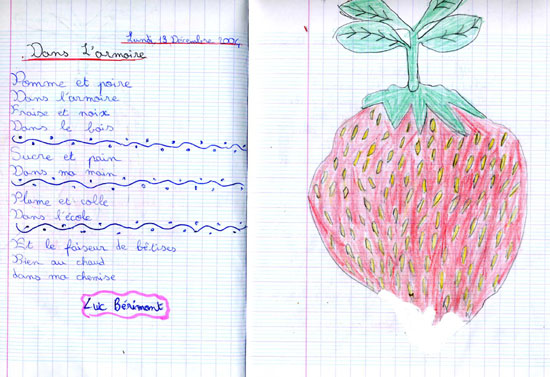 Lundi 13 Décembre 2004
Dans L'armoire
Pomme et poire
Dans l'armoire
Fraise et noix
Dans le bois
Sucre et pain
Dans ma main
Plume et colle
Dans l'école
Et le faiseur de bêtises
Bien au chaud
dans ma chemise
Luc Bérimont